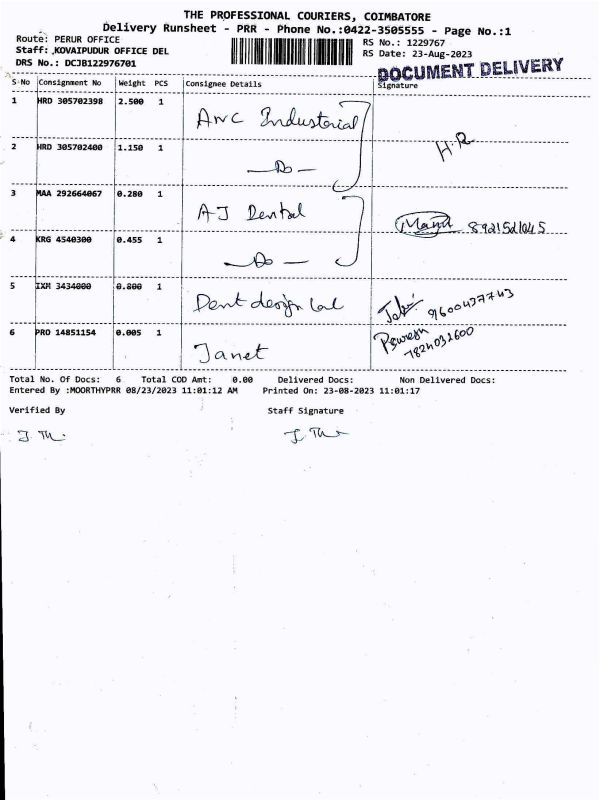 THE PROFESSIONAL COURIERS, COIMBATORE
Delivery Runsheet - PRR - Phone No.:0422-3505555 - Page No.:1
Route: PERUR OFFICE
Staff: ,KOVAIPUDUR OFFICE DEL
DRS No.: DCJB122976701
RS No.: 1229767
RS Date: 23-Aug-2023
DOCUMENT DELIVERY
S-No Consignment No Weight PCS Consignee Details Signature
1 HRD 305702398 2.500 1 ANC Industorial
2 HRD 305702400 1.150 1 — Do — H.R
3 MAA 292664067 0.280 1 AJ Dental
4 KRG 4540300 0.455 1 — Do —
5 IXM 3434000 0.800 1 Dent design Lal
6 PRO 14851154 0.005 1 Janet 7824032600
Total No. Of Docs: 6 Total COD Amt: 0.00 Delivered Docs: Non Delivered Docs:
Entered By :MOORTHYPRR 08/23/2023 11:01:12 AM Printed On: 23-08-2023 11:01:17
Verified By Staff Signature